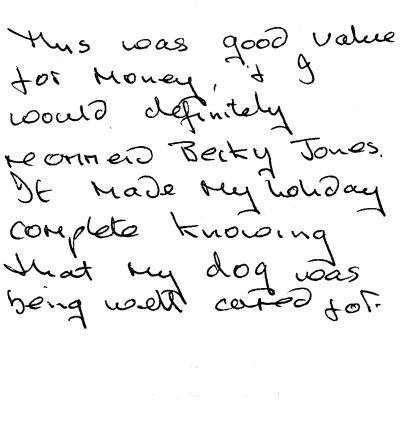 This was good value
for money, & I
would definitely
recommend Becky Jones.
It made my holiday
complete knowing
that my dog was
being well cared for.